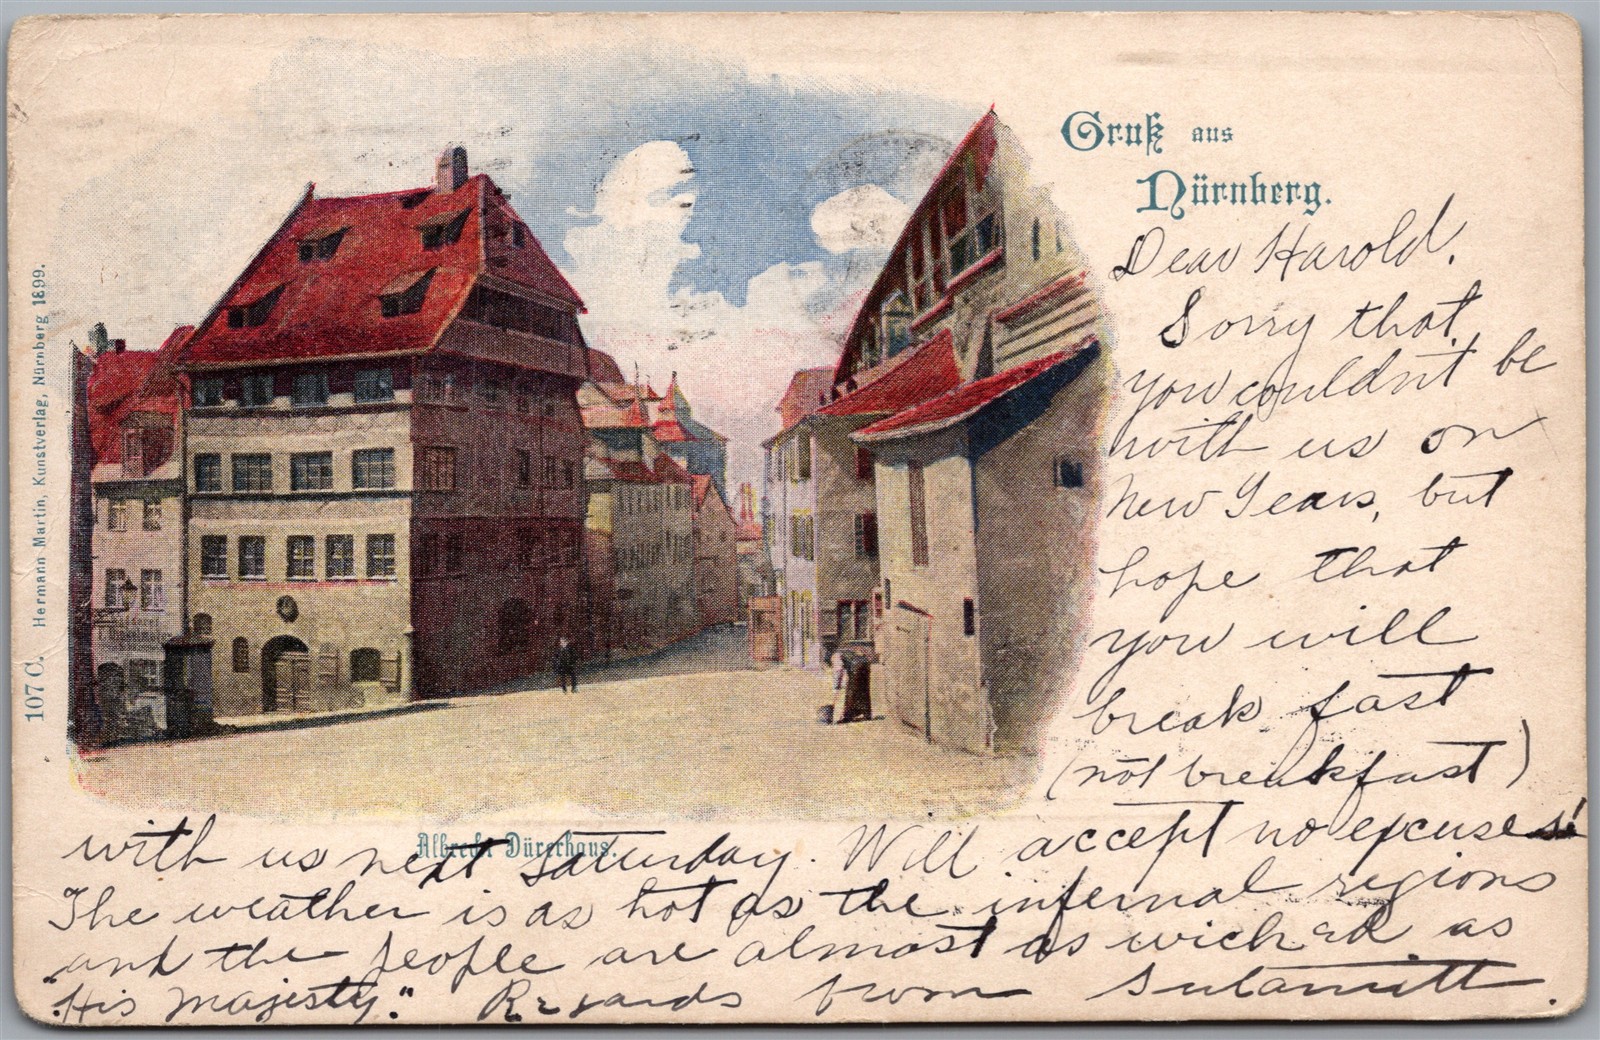 Gruß aus
Nürnberg.
107 C. Hermann Martin, Kunstverlag, Nürnberg 1899.
Albrecht Dürerhaus.
Dear Harold.
Sorry that
you couldn't be
with us on
New Years, but
hope that
you will
break fast
(not breakfast)
with us next Saturday. Will accept no excuses!
The weather is as hot as the infernal regions
and the people are almost as wicked as
"His Majesty". Regards from Sulamitt.